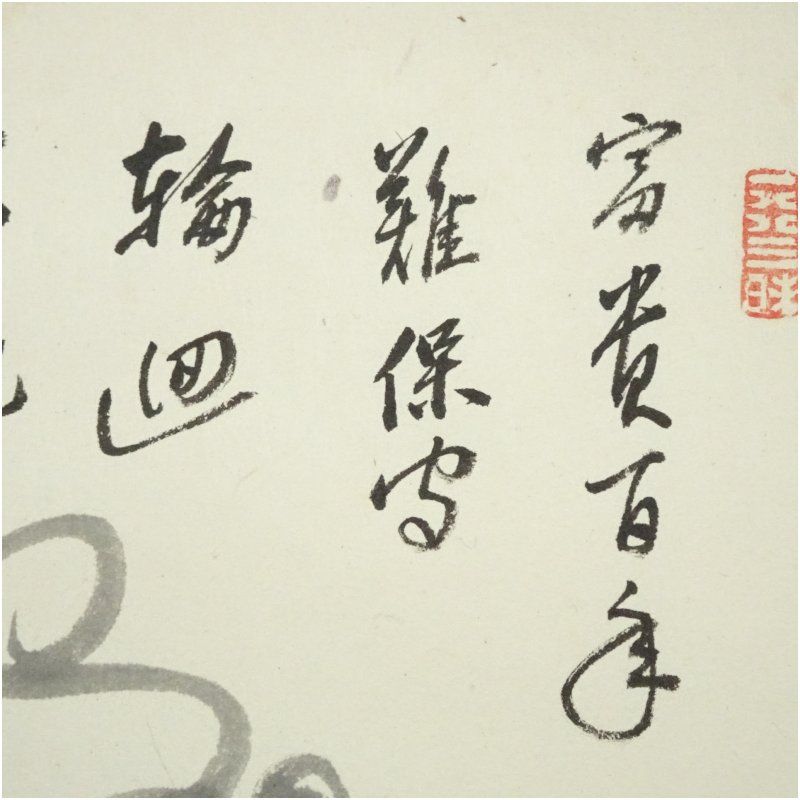 富貴百年
難保守
輪廻